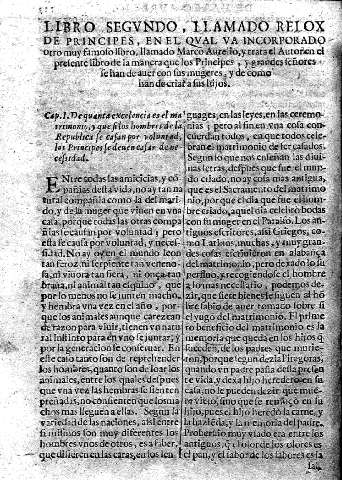 LIBRO SEGVNDO, LLAMADO RELOX
DE PRINCIPES, EN EL QVAL VA INCORPORADO
otro muy famoso libro, llamado Marco Aurelio, y trata el Autor en el
presente libro de la manera que los Principes, y grandes señores
se han de auer con sus mugeres, y de como
han de criar a sus hijos.
Cap. I. De quanta excelencia es el ma-
trimonio, y que si los hombres de la
Republica se casan por voluntad,
los Principes se deuen casar de ne-
cessidad.
ENtre todas las amicicias, y cō
pañias desta vida, no ay tan na
tural compañia como la del mari-
do, y de la muger que viuen en vna
casa, porque todas las otras compa
ñias se causan por voluntad; pero
esta se causa por voluntad, y neces-
sidad. No ay oy en el mundo leon
tan feroz, ni serpiente tan veneno-
sa, ni viuora tan fiera, ni onça tan
braua, ni animal tan esquiuo, que
por lo menos no se junten macho,
y hembra vna vez en el año, por-
que los animales aunque carezcan
de razon para viuir, tienen vn natu
ral instinto para en vno se juntar, y
por la generacion se conseruar. En
este caso tanto son de reprehender
los hombres, quanto son de loar los
animales, entre los quales despues
que vna vez las hembras se sienten
preñadas, no consienten que los ma
chos mas lleguen a ellas. Segun la
variedad de las naciones, assi entre
si mismos son muy diferentes los
hombres vnos de otros, es a saber,
que difieren en las caras, en los len-
guages, en las leyes, en las ceremo
nias; pero al fin en vna cosa con-
cuerdan todos, es que todos cele-
bran el matrimonio de ser casados.
Segun lo que nos enseñan las diui-
nas letras, despues que fue el mun-
do criado, no ay cosa mas antigua,
que es el Sacramento del matrimo
nio, porque el dia que fue el hom-
bre criado, aquel dia celebrò bodas
con su muger en el Paraiso. Los an-
tiguos escritores, assi Griegos, co-
mo Latinos, muchas, y muy gran-
des cosas escriuieron en alabança
del matrimonio, pero dexado lo
prolixo, y recogiendose el hombre
a lo mas necessario, podemos de-
zir, que siete bienes se siguen al hō
bre sabio de auer tomado sobre si
el yugo del matrimonio. El prime
ro beneficio del matrimonio es la
memoria que queda en los hijos q̄
suceden, de los padres que murie-
ron, porque segun dezia Pitagoras,
quando vn padre passa desta presen
te vida, y dexa hijo heredero en su
casa, no le pueden dezir que mue-
re viejo, sino que se remoça en su
hijo, pues el hijo hereda la carne, y
la hazienda, y la memoria del padre.
Prouerbio muy viado era entre los
antiguos, q̄ el olor de los olores es
el pan, y el sabor de los sabores es la
sal,